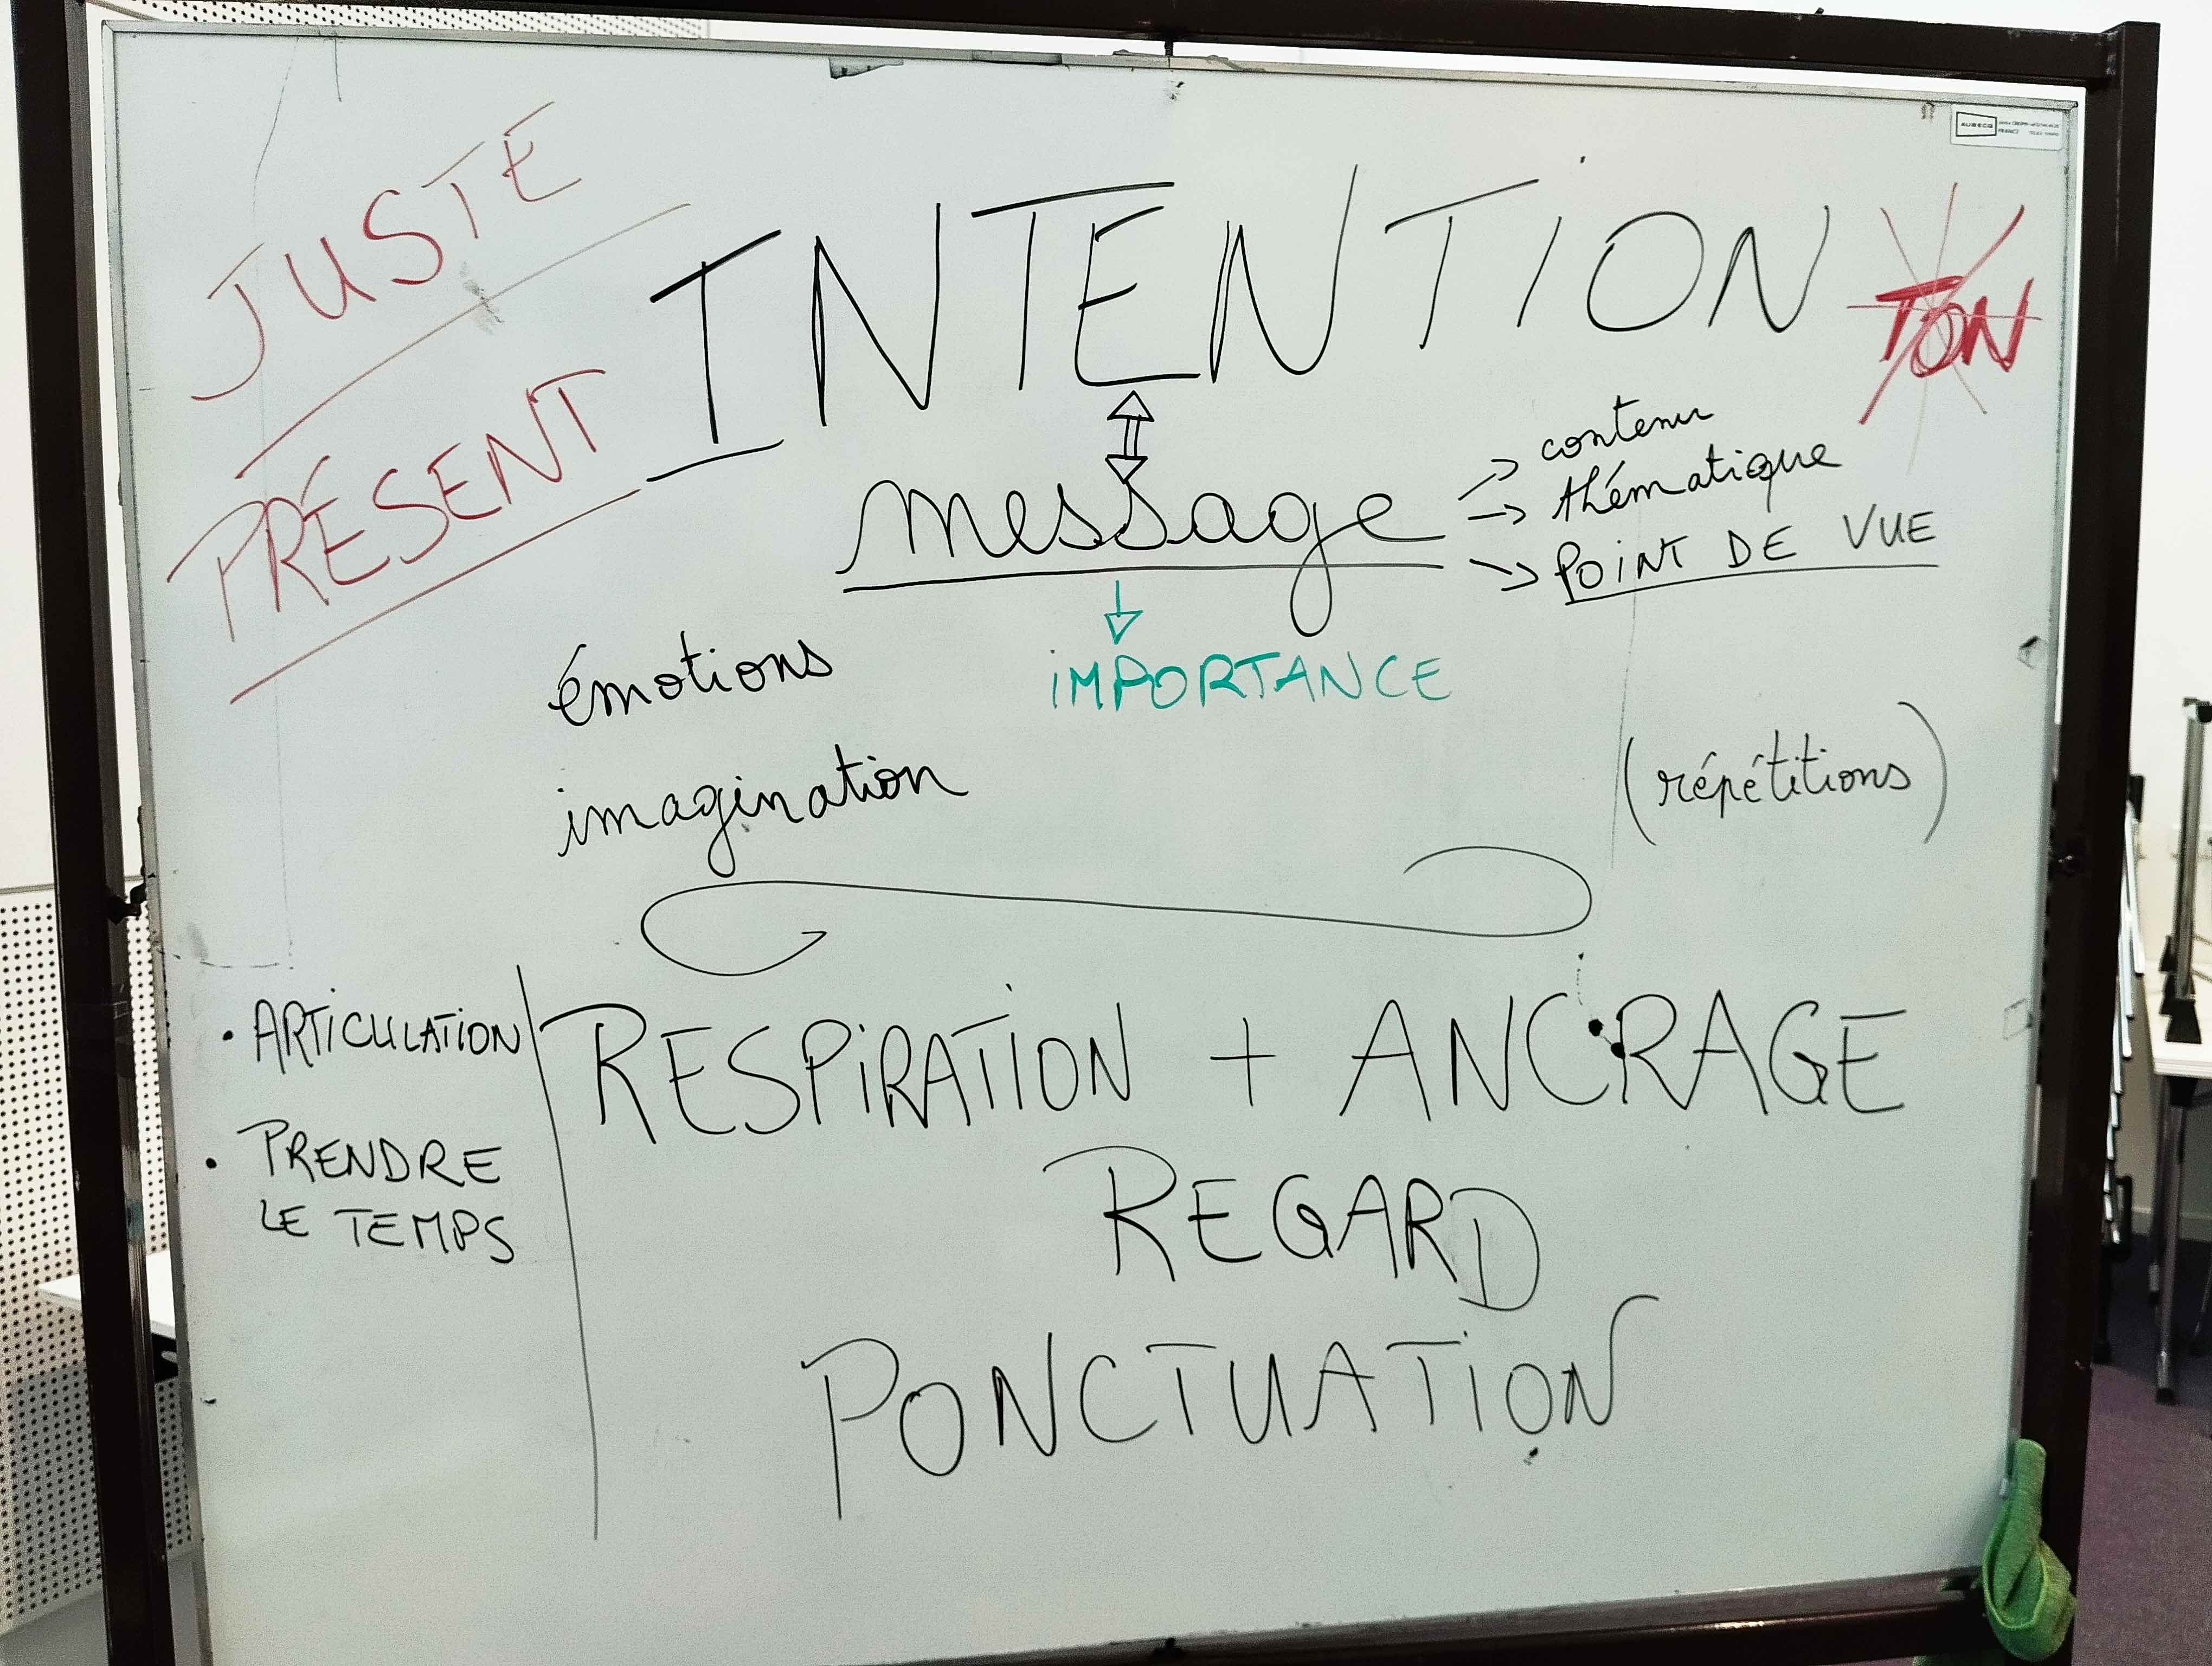 JUSTE
PRÉSENT
INTENTION
TON
message
→ contenu
→ thématique
→ POINT DE VUE
IMPORTANCE
émotions
imagination
(répétitions)
• ARTICULATION
• PRENDRE
LE TEMPS
RESPIRATION + ANCRAGE
REGARD
PONCTUATION
AUBECQ
FRANCE